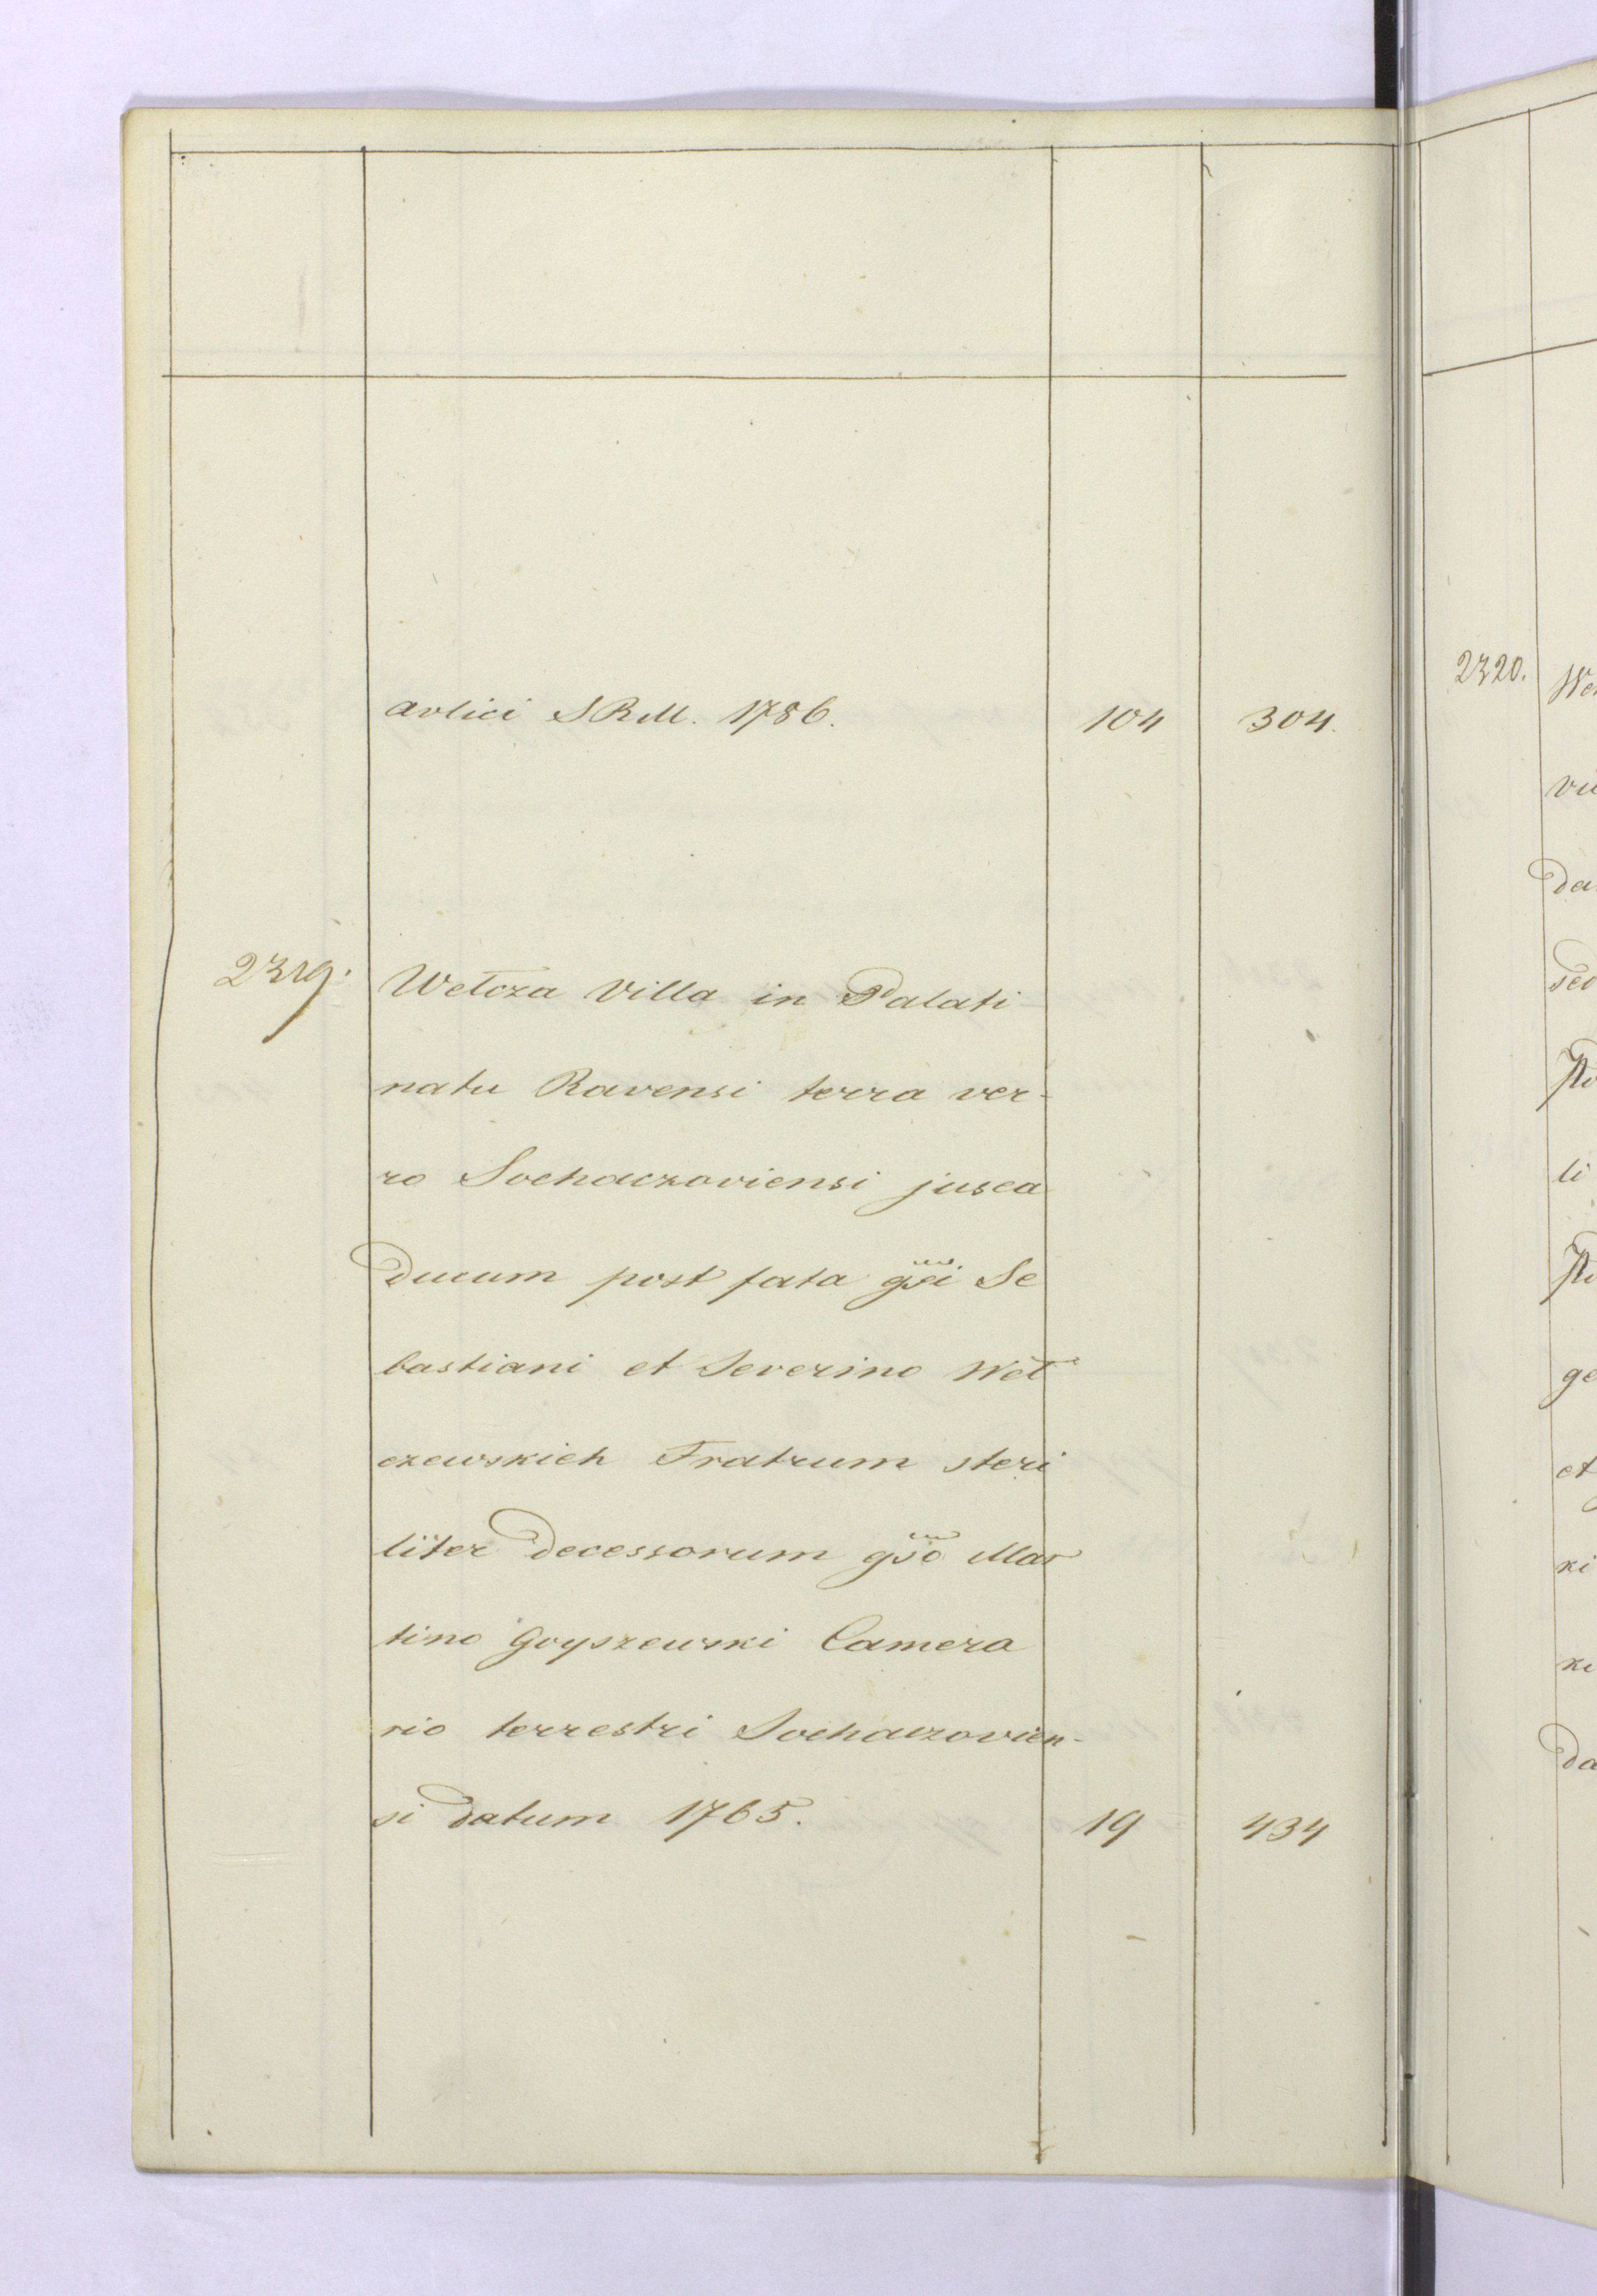 avlici SRM. 1786. 104 304.
2319. Wetcza Villa in Palati
natu Ravensi terra ver-
ro Sochaczoviensi jusca
Ducum post fata gsi Se
bastiani et Severino Wet
czewskich Fratrum steri
liter Decessorum gso Mar
tino Goyszewski Camera
rio terrestri Sochaczovien-
si Datum 1765. 19 434
2320.
vu
Da
sed
li
ge
et
ki
Da